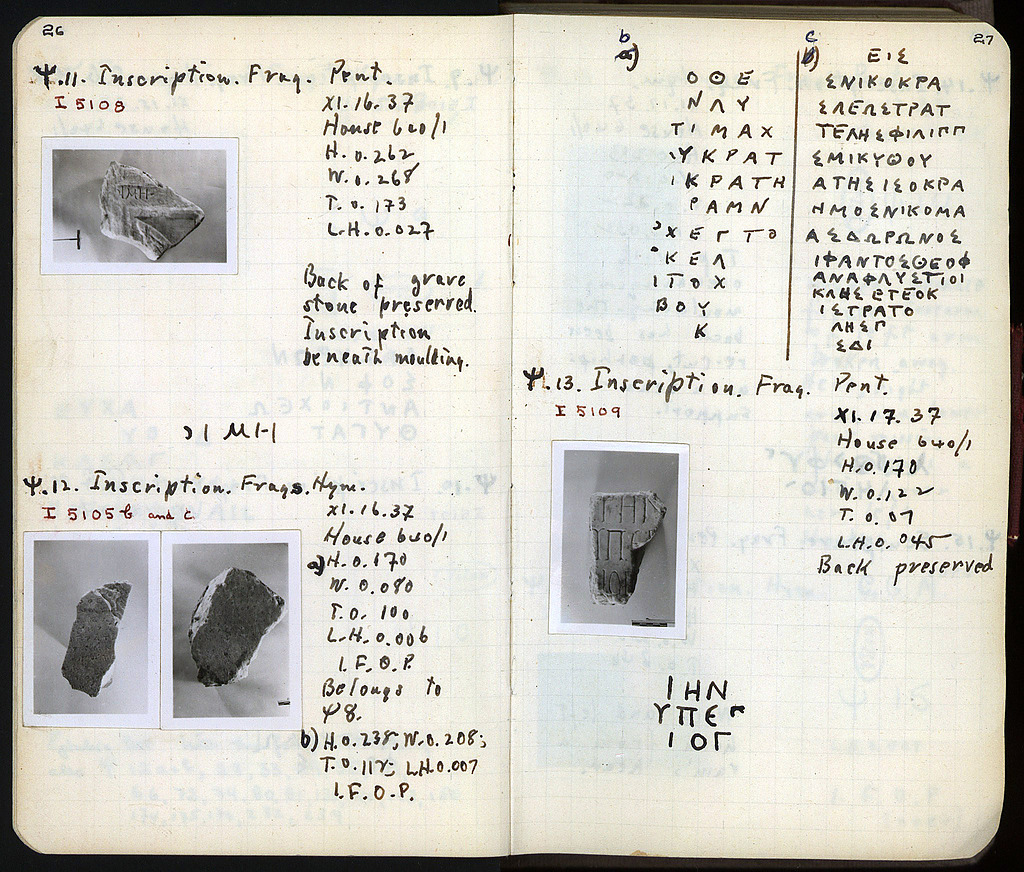 26
Ψ.11. Inscription. Frag. Pent.
I 5108
XI.16.37
House 640/1
H. 0.262
W. 0.268
T. 0.173
L.H. 0.027
Back of grave
stone preserved.
Inscription
beneath moulding.
Ψ.12. Inscription. Frags. Hym.
I 5105 b and c
XI.16.37
House 640/1
a) H. 0.170
W. 0.080
T. 0.100
L.H. 0.006
I.F.O.P.
Belongs to
Ψ 8.
b) H. 0.238; W. 0.208;
T. 0.115; L.H. 0.007
I.F.O.P.
27
b
a)
Ο Θ Ε
Ν Λ Υ
Τ Ι Μ Α Χ
Υ Κ Ρ Α Τ
Ι Κ Ρ Α Τ Η
Ρ Α Μ Ν
Κ Ε Λ
Ι Τ Ο Χ
Β Ο Υ
Κ
c
b)
ΕΙΣ
ΣΝΙΚΟΚΡΑ
ΣΛΕΩΣΤΡΑΤ
ΤΕΛΗΣΦΙΛΙΠΠ
ΣΜΙΚΥΘΟΥ
ΑΤΗΣΙΣΟΚΡΑ
ΗΜΟΣΝΙΚΟΜΑ
ΑΣΔΩΡΩΝΟΣ
ΙΦΑΝΤΟΣΘΕΟΦ
ΑΝΑΦΛΥΣΤΙΟΙ
ΚΛΗΣΕΤΕΟΚ
ΙΣΤΡΑΤΟ
ΛΗΣΓ
ΣΔΙ
Ψ.13. Inscription. Frag. Pent.
I 5109
XI.17.37
House 640/1
H. 0.170
W. 0.122
T. 0.07
L.H. 0.045
Back preserved
ΙΗΝ
ΥΠΕΓ
ΙΟΓ